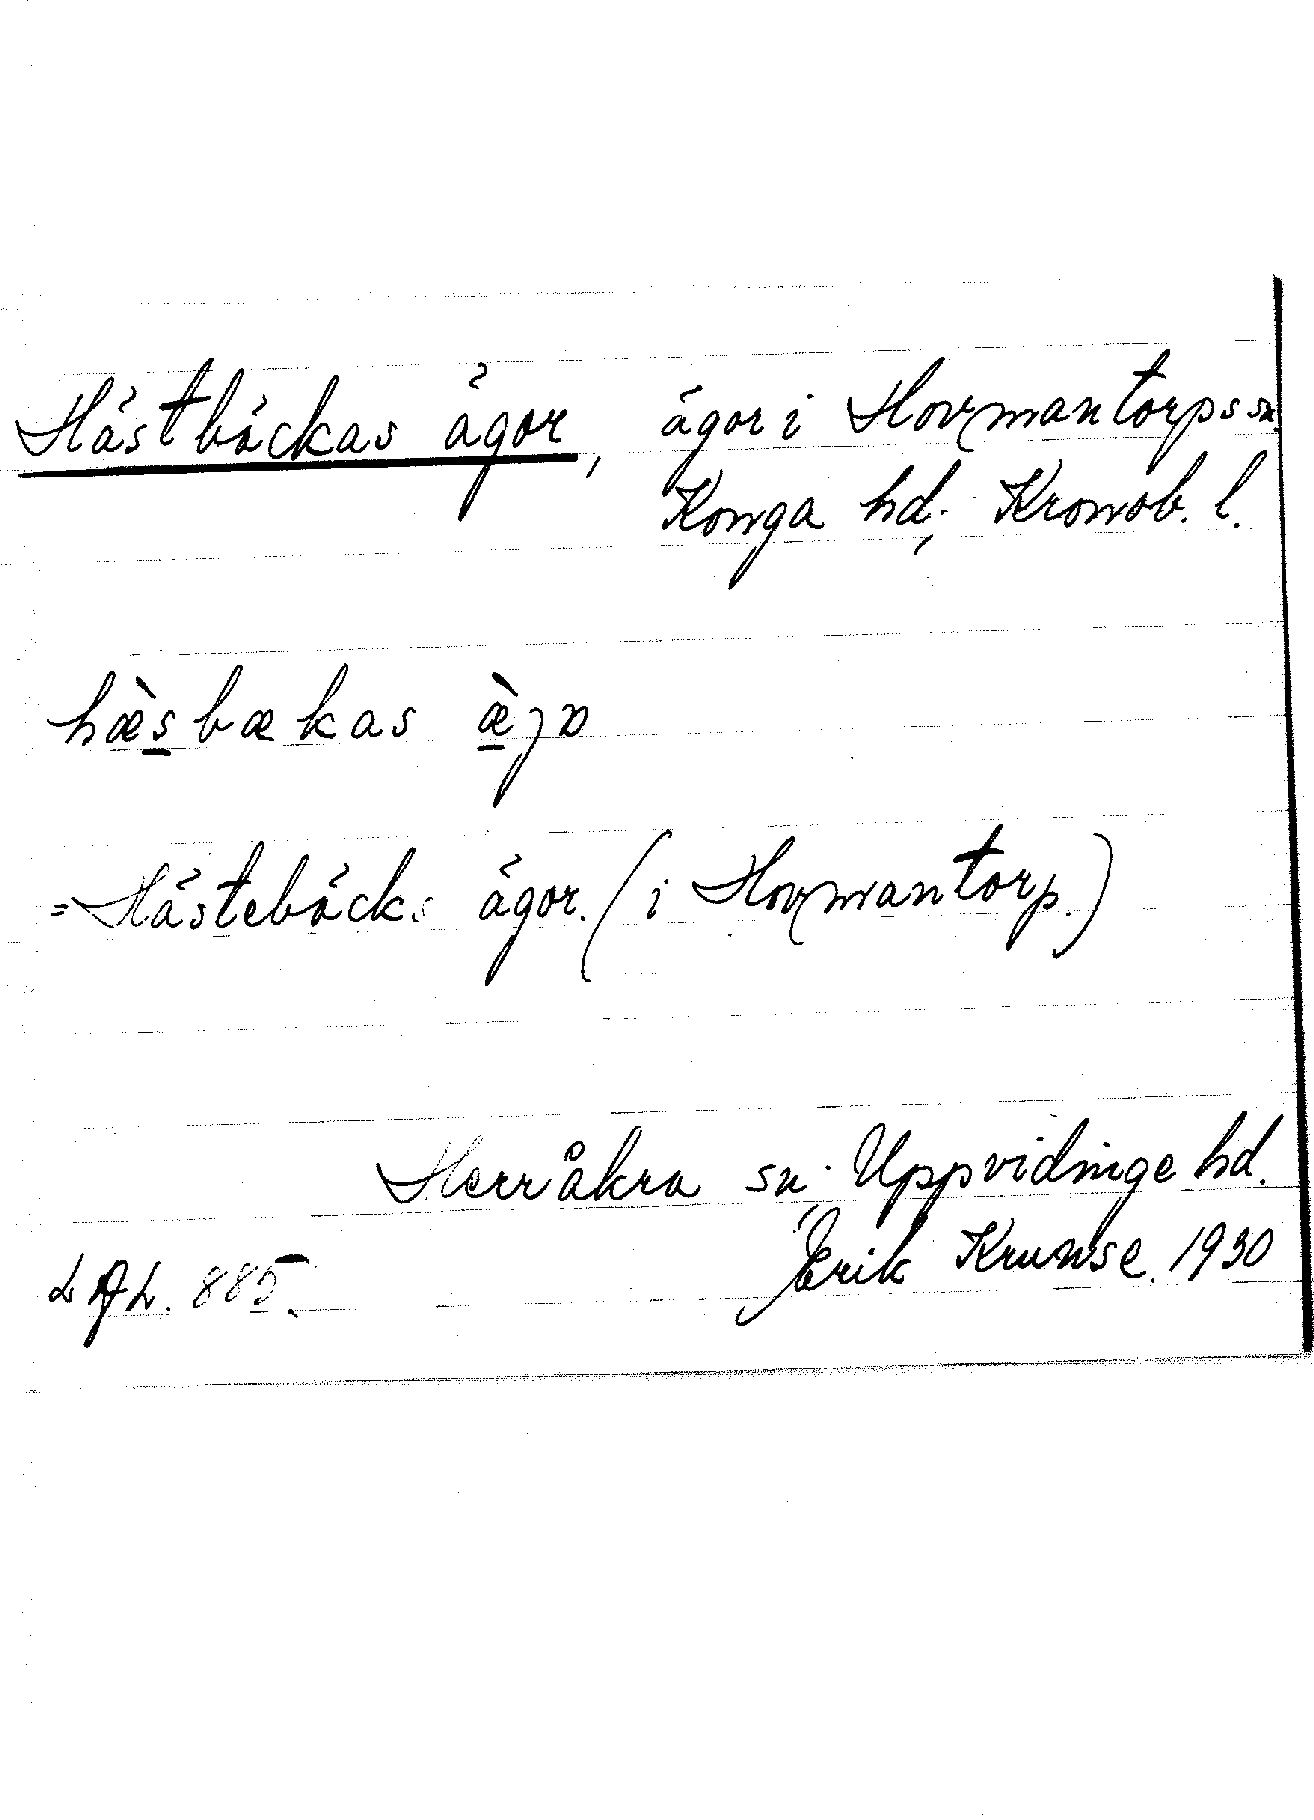 Hästbäckas ägor, ägor i Hovmantorps sn.
Konga hd, Kronob. l.
hæ̀s̲bækas æ̲̀ɡɒ
=Hästebäcks ägor. (i Hovmantorp.)
Herråkra sn, Uppvidinge hd.
Erik Krunse. 1930
LAL. 885.